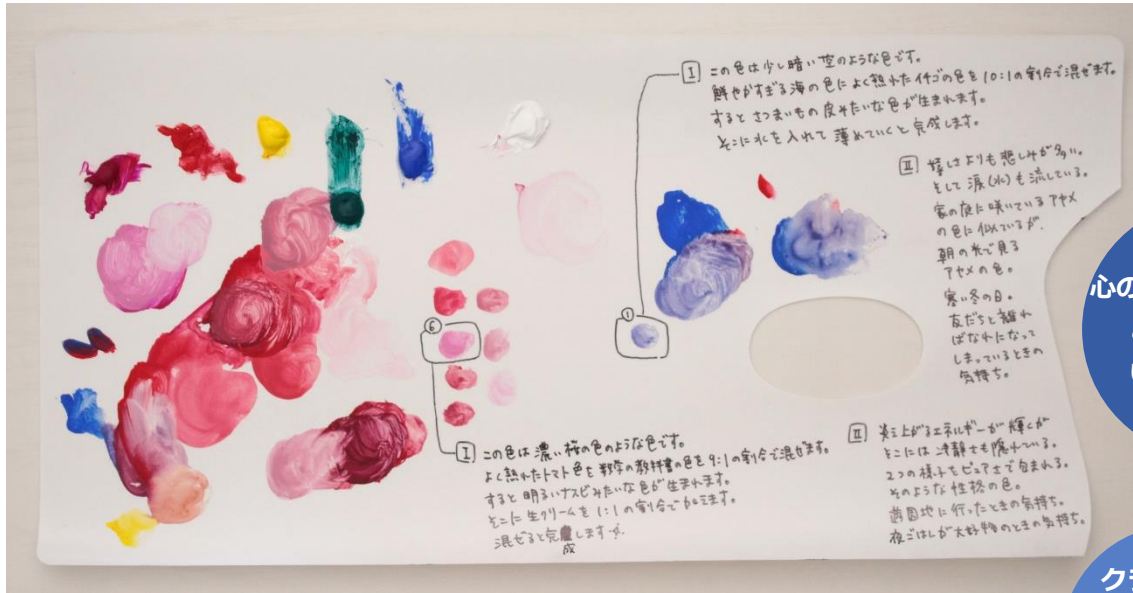 I この色は少し暗い空のような色です。
鮮やかすぎる海の色によく熟れたイチゴの色を10:1の割合で混ぜます。
するとさつまいもの皮みたいな色が生まれます。
そこに水を入れて薄めていくと完成します。
II 嬉しさよりも悲しみが多い。
そして涙(水)も流している。
家の庭に咲いているアヤメ
の色に似ているが、
朝の光で見る
アヤメの色。
寒い冬の日。
友だちと離れ
ばなれになって
しまっているときの
気持ち。
①
⑥
I この色は濃い桜の色のような色です。
よく熟れたトマト色を数学の教科書の色を9:1の割合で混ぜます。
すると明るいナスビみたいな色が生まれます。
そこに生クリームを1:1の割合で加えます。
混ぜると完成します
II 炎上がるエネルギーが輝くが
そこには冷静さも隠れている。
2つの様子をピュアさで包まれる。
そのような性格の色。
遊園地に行ったときの気持ち。
夜ごはんが大好物のときの気持ち。
心の
クラ